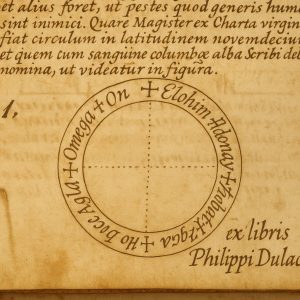 et alius foret, ut pestes quod generis hum
sint inimici. Quare Magister ex Charta virgin
fiat circulum in latitudinem novemdeciu
et quem cum sanguine columbæ alba Scribi de
nomina, ut videatur in figura.
1,
✝ Elohim ✝ Adonay ✝ ✝ Ho boc ✝ Agla ✝ Omega ✝ On
ex libris
Philippi Dulac